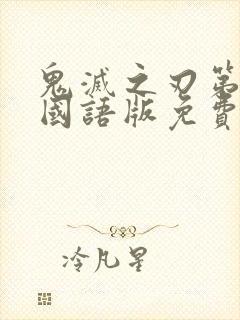 鬼滅之刃第
國語版免費
冷凡星